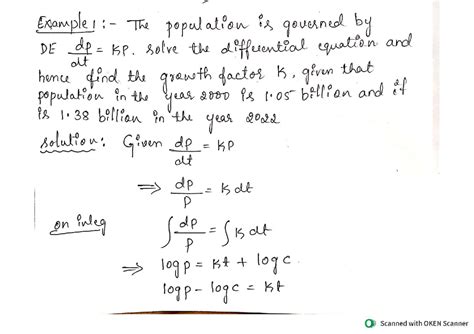 Example 1 :- The population is governed by
DE dp/dt = KP. solve the differential equation and
hence find the growth factor K, given that
population in the year 2000 is 1.05 billion and it
is 1.38 billion in the year 2022
solution: Given dp/dt = KP
⇒ dp/P = K dt
on integ ∫ dp/P = ∫ K dt
⇒ log p = Kt + log c
log p - log c = Kt
Scanned with OKEN Scanner